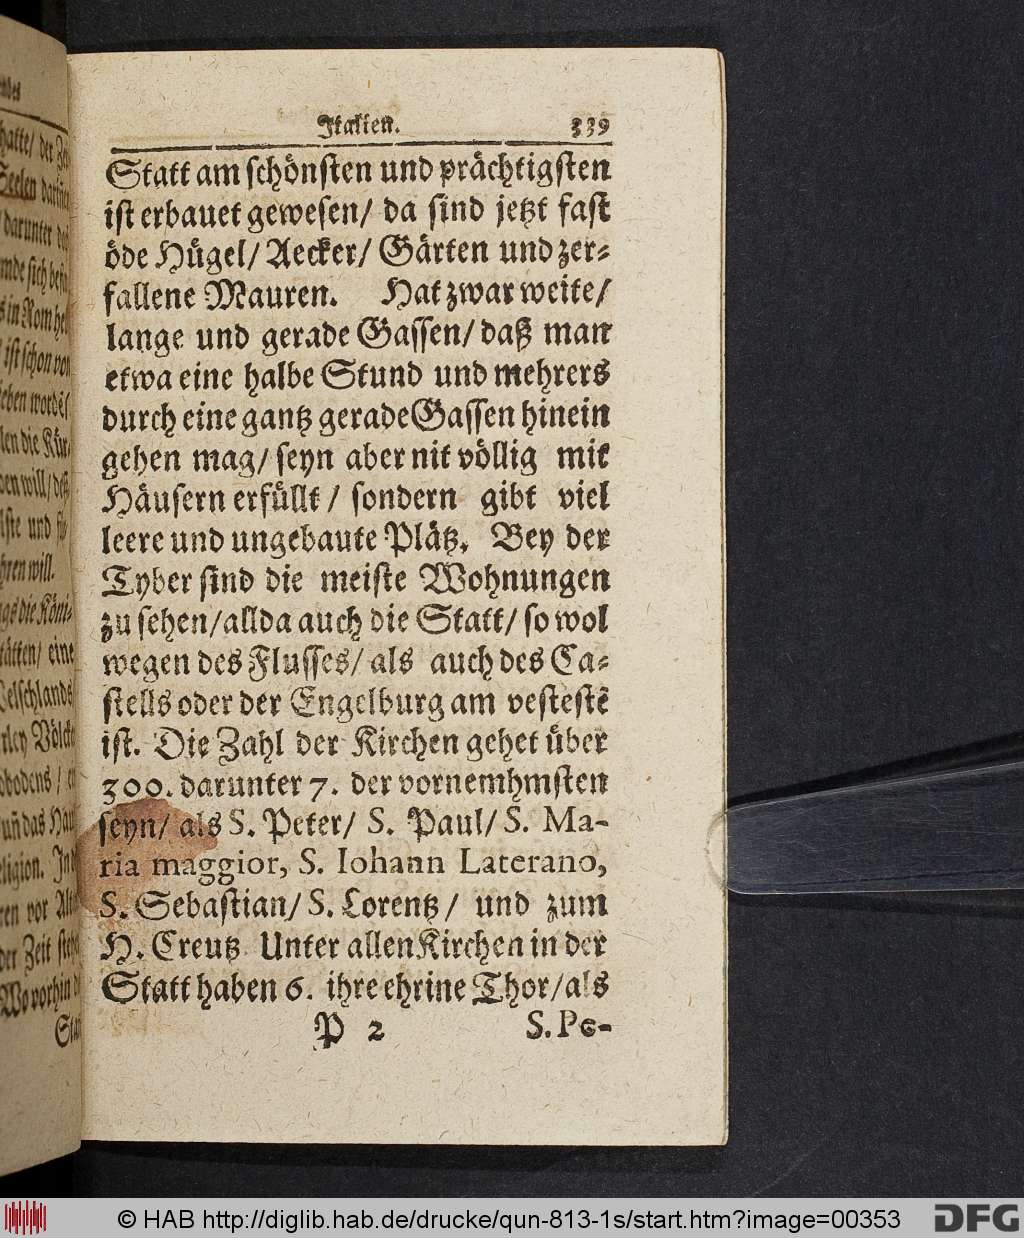 Italien. 339
Statt am schönsten und prächtigsten
ist erbauet gewesen/ da sind jetzt fast
öde Hügel/ Aecker/ Gärten und zer-
fallene Mauren. Hat zwar weite/
lange und gerade Gassen/ daß man
etwa eine halbe Stund und mehrers
durch eine gantz gerade Gassen hinein
gehen mag/ seyn aber nit völlig mit
Häusern erfüllt/ sondern gibt viel
leere und ungebaute Plätz. Bey der
Tyber sind die meiste Wohnungen
zu sehen/ allda auch die Statt/ so wol
wegen des Flusses/ als auch des Ca-
stells oder der Engelburg am vestestẽ
ist. Die Zahl der Kirchen gehet über
300. darunter 7. der vornemhmsten
seyn/ als S. Peter/ S. Paul/ S. Ma-
ria maggior, S. Iohann Laterano,
S. Sebastian/ S. Lorentz/ und zum
H. Creutz Unter allen Kirchen in der
Statt haben 6. ihre ehrine Thor/ als
P 2 S. Pe-
© HAB http://diglib.hab.de/drucke/qun-813-1s/start.htm?image=00353
DFG